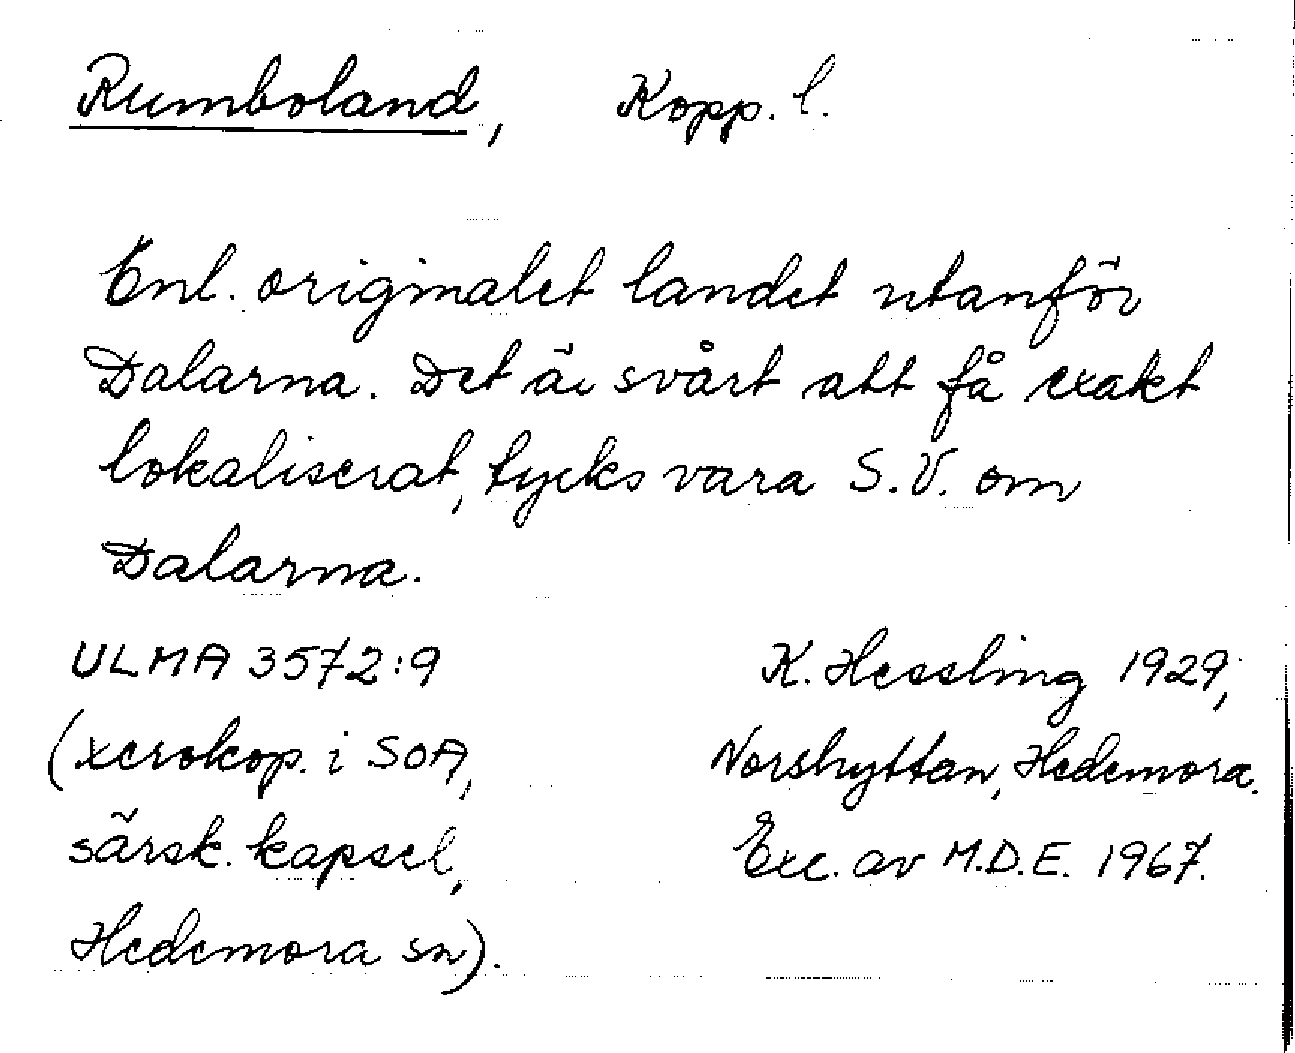 Rumboland, Kopp. l.
Enl. originalet landet utanför
Dalarna. Det är svårt att få exakt
lokaliserat, tycks vara S.V. om
Dalarna.
ULMA 3572:9 K. Hessling 1929,
(xerokop. i SOA, Norshyttan, Hedemora.
särsk. kapsel, Exc. av M.D.E. 1967.
Hedemora sn).